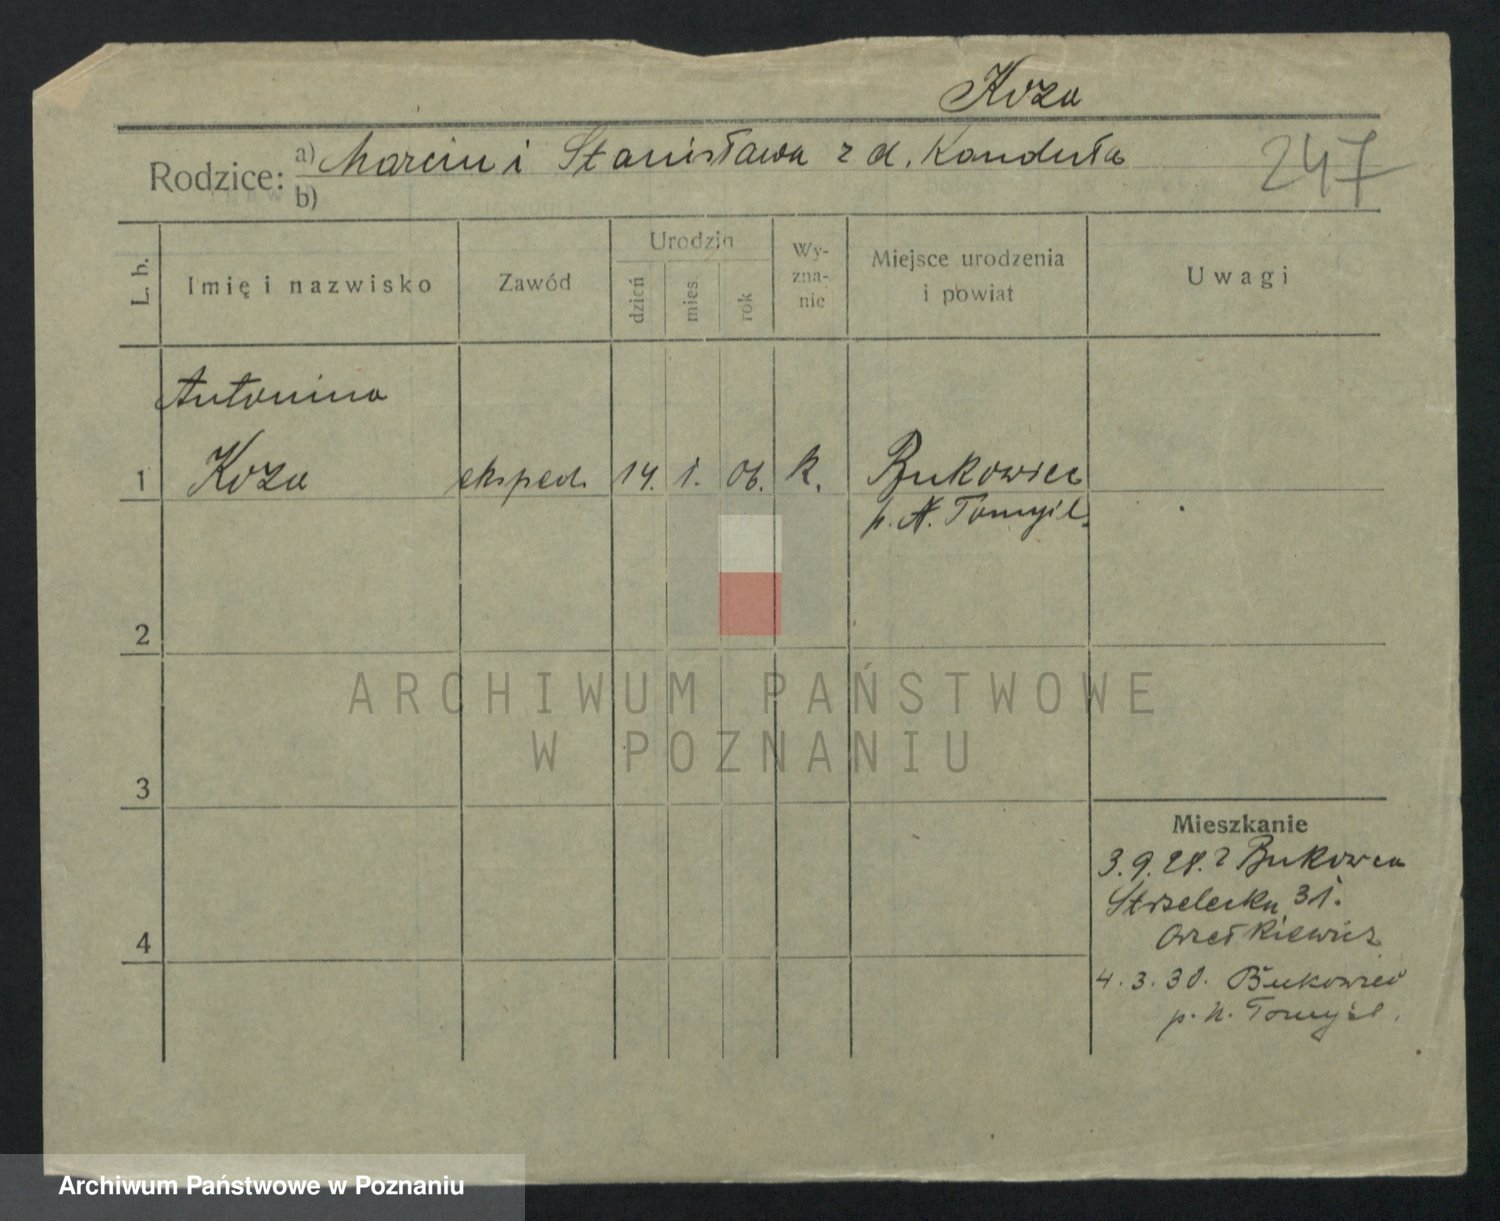 Koza
Rodzice: a) Marcin i Stanisława z d. Kanduła
b)
247
L. b.
Imię i nazwisko
Zawód
Urodzin
dzień
mies.
rok
Wy-
zna-
nie
Miejsce urodzenia
i powiat
Uwagi
Antonina
1 Koza eksped. 14. 1. 06. k. Bukowiec
p. N. Tomyśl.
2
ARCHIWUM PAŃSTWOWE
W POZNANIU
3
Mieszkanie
3.9.28. z Bukowca
Strzelecka 31.
4
4.3.30. Bukowiec
p. N. Tomyśl.
Archiwum Państwowe w Poznaniu